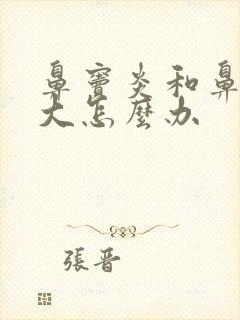 鼻竇炎和鼻
大怎麼办
張晋